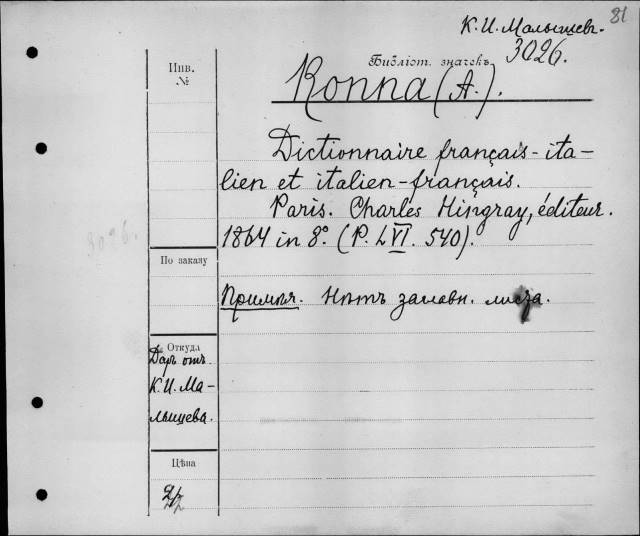 81
К. И. Малышевъ.
3026.
Библіот. значекъ
Ronna (A.).
Dictionnaire français-ita-
lien et italien-français.
Paris. Charles Hingray, éditeur.
1864 in 8°. (P. LVI. 540).
Примѣч. Нѣтъ заглавн. листа.
Инв.
№
3026.
По заказу
Откуда
Даръ отъ
К. И. Ма-
лышева.
Цѣна